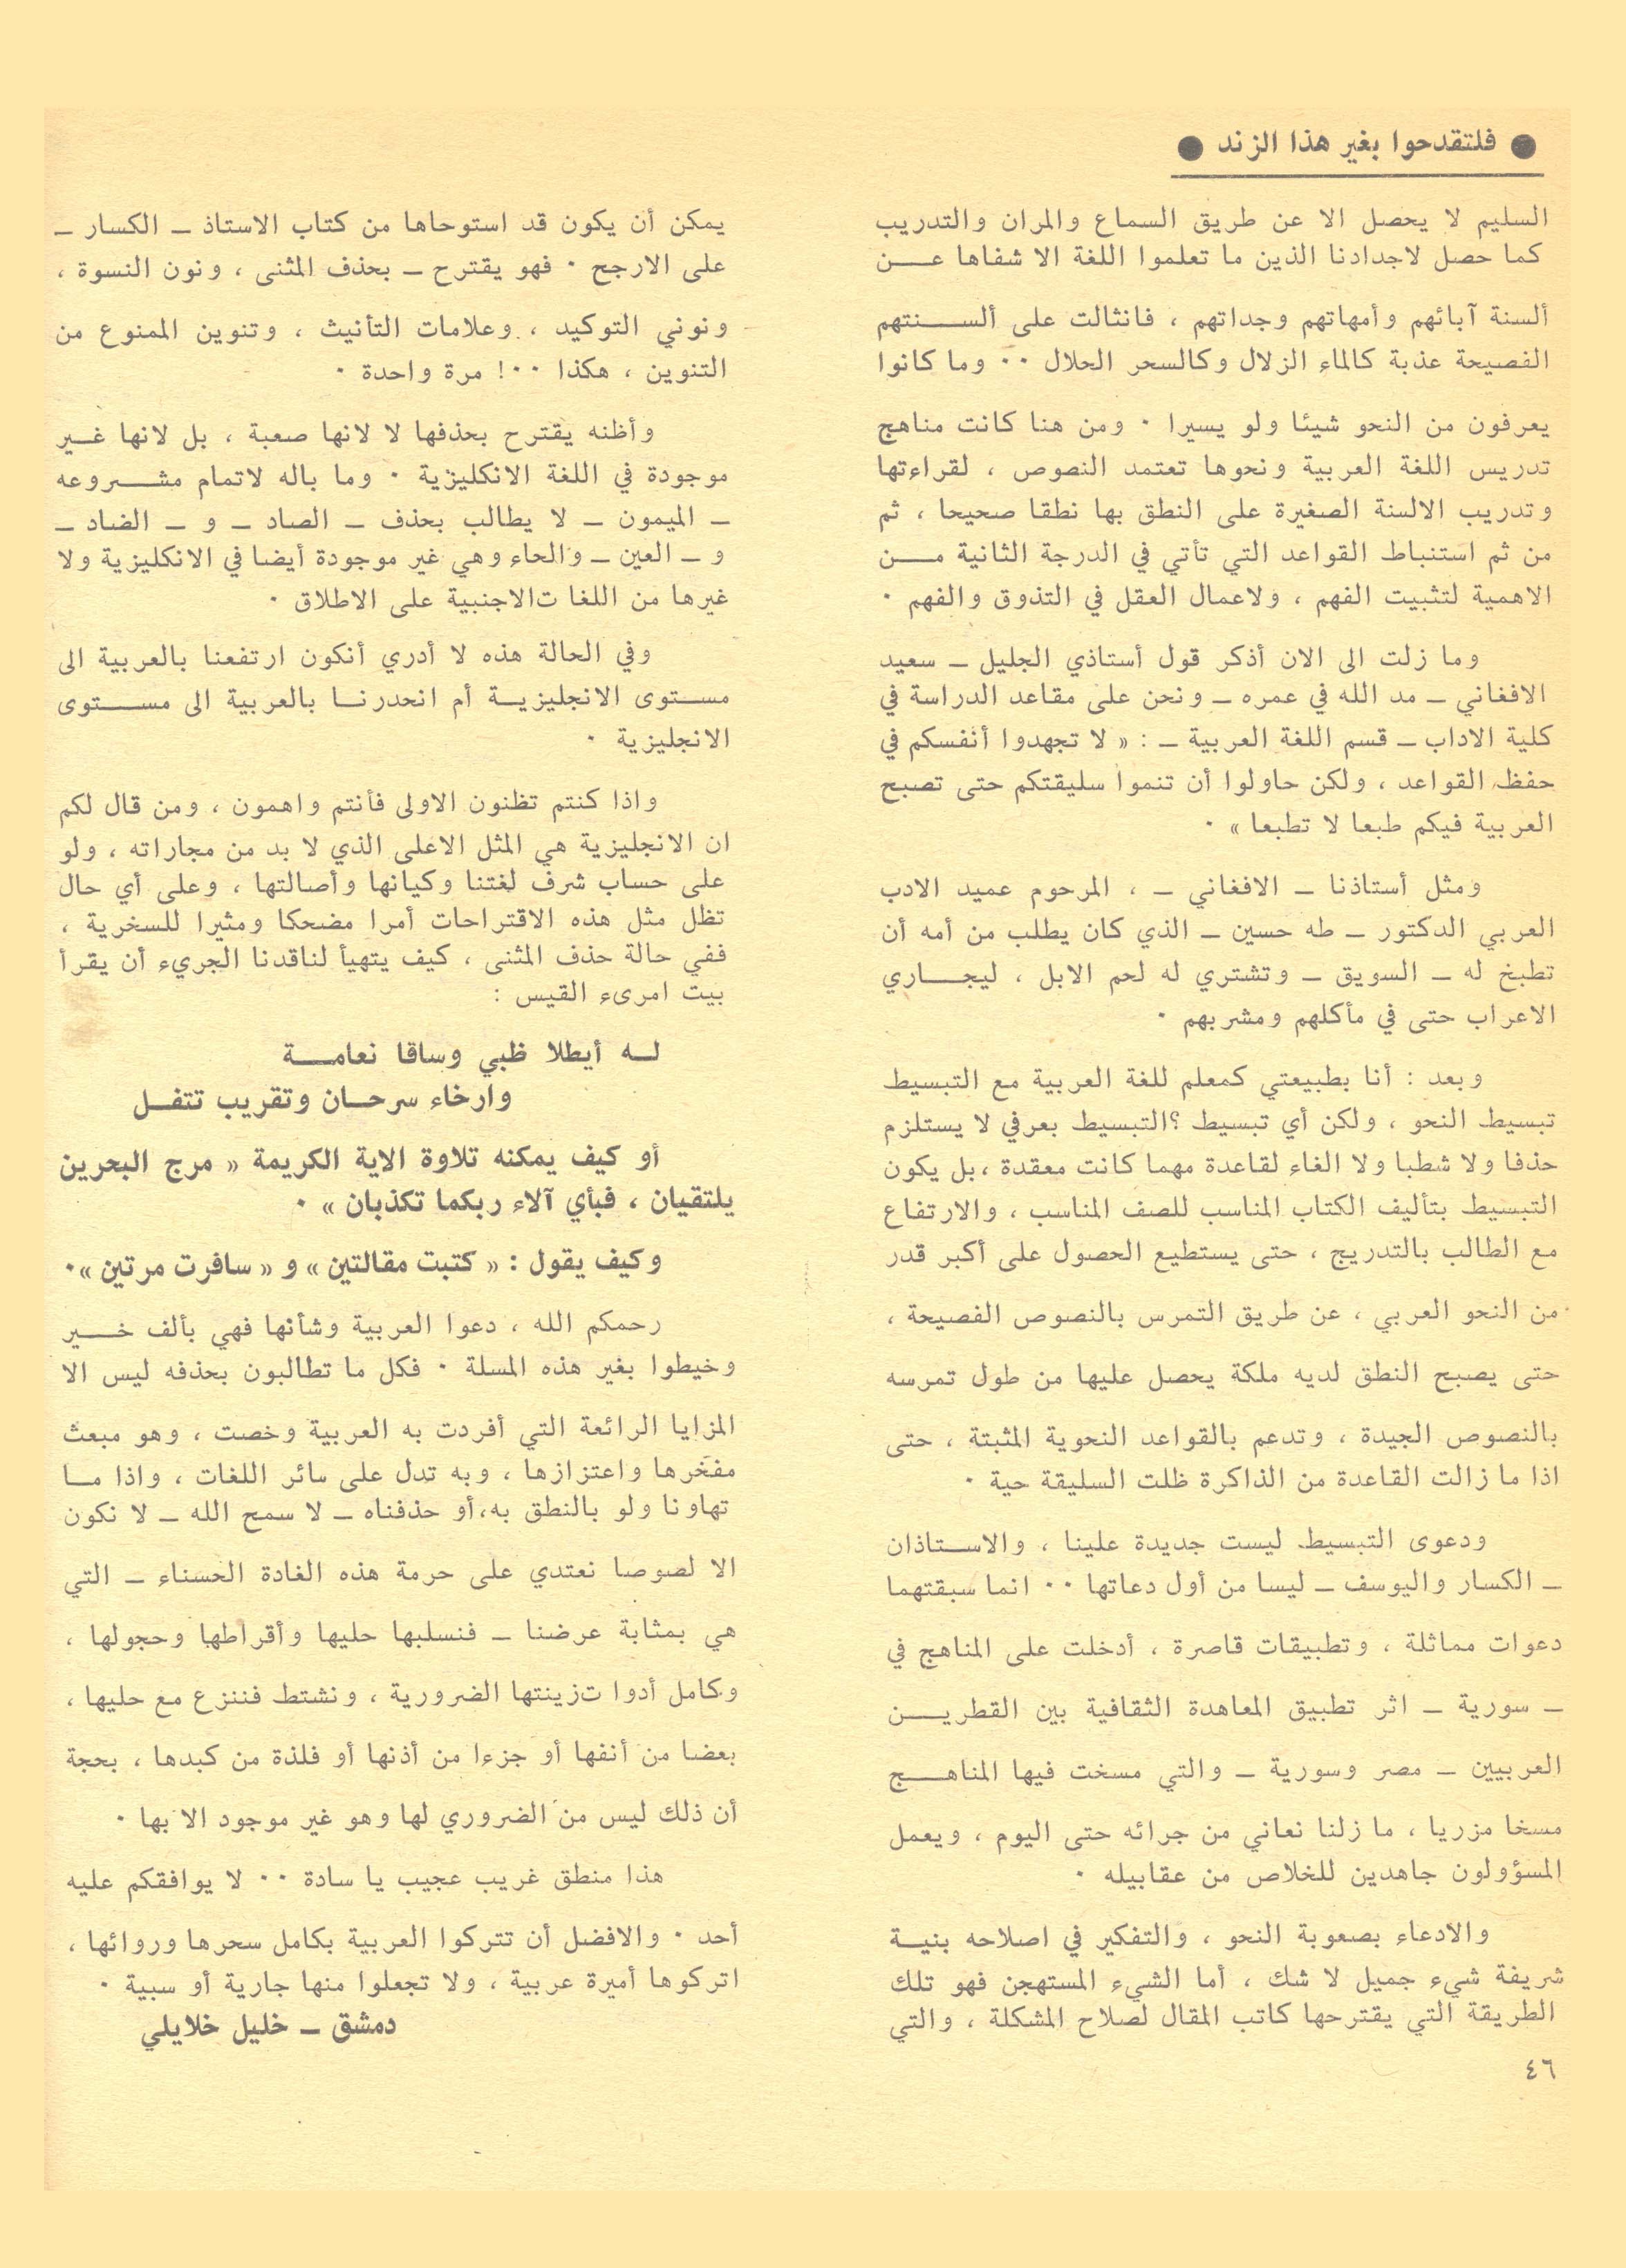 ● فلتقدحوا بغير هذا الزند ●
السليم لا يحصل الا عن طريق السماع والمران والتدريب
كما حصل لاجدادنا الذين ما تعلموا اللغة الا شفاها عن
ألسنة آبائهم وأمهاتهم وجداتهم ، فانثالت على ألسنتهم
الفصيحة عذبة كالماء الزلال وكالسحر الحلال ٠٠ وما كانوا
يعرفون من النحو شيئا ولو يسيرا ٠ ومن هنا كانت مناهج
تدريس اللغة العربية ونحوها تعتمد النصوص ، لقراءتها
وتدريب الالسنة الصغيرة على النطق بها نطقا صحيحا ، ثم
من ثم استنباط القواعد التي تأتي في الدرجة الثانية من
الاهمية لتثبيت الفهم ، ولاعمال العقل في التذوق والفهم ٠
وما زلت الى الان أذكر قول أستاذي الجليل ــ سعيد
الافغاني ــ مد الله في عمره ــ ونحن على مقاعد الدراسة في
كلية الاداب ــ قسم اللغة العربية ــ : « لا تجهدوا أنفسكم في
حفظ القواعد ، ولكن حاولوا أن تنموا سليقتكم حتى تصبح
العربية فيكم طبعا لا تطبعا » ٠
ومثل أستاذنا ــ الافغاني ــ ، المرحوم عميد الادب
العربي الدكتور ــ طه حسين ــ الذي كان يطلب من أمه أن
تطبخ له ــ السويق ــ وتشتري له لحم الابل ، ليجاري
الاعراب حتى في مأكلهم ومشربهم ٠
وبعد : أنا بطبيعتي كمعلم للغة العربية مع التبسيط
تبسيط النحو ، ولكن أي تبسيط ؟التبسيط بعرفي لا يستلزم
حذفا ولا شطبا ولا الغاء لقاعدة مهما كانت معقدة ،بل يكون
التبسيط بتأليف الكتاب المناسب للصف المناسب ، والارتفاع
مع الطالب بالتدريج ، حتى يستطيع الحصول على أكبر قدر
من النحو العربي ، عن طريق التمرس بالنصوص الفصيحة ،
حتى يصبح النطق لديه ملكة يحصل عليها من طول تمرسه
بالنصوص الجيدة ، وتدعم بالقواعد النحوية المثبتة ، حتى
اذا ما زالت القاعدة من الذاكرة ظلت السليقة حية ٠
ودعوى التبسيط ليست جديدة علينا ، والاستاذان
ــ الكسار واليوسف ــ ليسا من أول دعاتها ٠٠ انما سبقتهما
دعوات مماثلة ، وتطبيقات قاصرة ، أدخلت على المناهج في
ــ سورية ــ اثر تطبيق المعاهدة الثقافية بين القطرين
العربيين ــ مصر وسورية ــ والتي مسخت فيها المناهج
مسخا مزريا ، ما زلنا نعاني من جرائه حتى اليوم ، ويعمل
المسؤولون جاهدين للخلاص من عقابيله ٠
والادعاء بصعوبة النحو ، والتفكير في اصلاحه بنية
شريفة شيء جميل لا شك ، أما الشيء المستهجن فهو تلك
الطريقة التي يقترحها كاتب المقال لصلاح المشكلة ، والتي
يمكن أن يكون قد استوحاها من كتاب الاستاذ ــ الكسار ــ
على الارجح ٠ فهو يقترح ــ بحذف المثنى ، ونون النسوة ،
ونوني التوكيد ، وعلامات التأنيث ، وتنوين الممنوع من
التنوين ، هكذا ٠٠! مرة واحدة ٠
وأظنه يقترح بحذفها لا لانها صعبة ، بل لانها غير
موجودة في اللغة الانكليزية ٠ وما باله لاتمام مشروعه
ــ الميمون ــ لا يطالب بحذف ــ الصاد ــ و ــ الضاد ــ
و ــ العين ــ والحاء وهي غير موجودة أيضا في الانكليزية ولا
غيرها من اللغا تالاجنبية على الاطلاق ٠
وفي الحالة هذه لا أدري أنكون ارتفعنا بالعربية الى
مستوى الانجليزية أم انحدرنا بالعربية الى مستوى
الانجليزية ٠
واذا كنتم تظنون الاولى فأنتم واهمون ، ومن قال لكم
ان الانجليزية هي المثل الاعلى الذي لا بد من مجاراته ، ولو
على حساب شرف لغتنا وكيانها وأصالتها ، وعلى أي حال
تظل مثل هذه الاقتراحات أمرا مضحكا ومثيرا للسخرية ،
ففي حالة حذف المثنى ، كيف يتهيأ لناقدنا الجريء أن يقرأ
بيت امرىء القيس :
له أيطلا ظبي وساقا نعامة
وارخاء سرحان وتقريب تتفل
أو كيف يمكنه تلاوة الاية الكريمة « مرج البحرين
يلتقيان ، فبأي آلاء ربكما تكذبان » ٠
وكيف يقول : « كتبت مقالتين » و « سافرت مرتين »٠
رحمكم الله ، دعوا العربية وشأنها فهي بألف خير
وخيطوا بغير هذه المسلة ٠ فكل ما تطالبون بحذفه ليس الا
المزايا الرائعة التي أفردت به العربية وخصت ، وهو مبعث
مفخرها واعتزازها ، وبه تدل على سائر اللغات ، واذا ما
تهاونا ولو بالنطق به،أو حذفناه ــ لا سمح الله ــ لا نكون
الا لصوصا نعتدي على حرمة هذه الغادة الحسناء ــ التي
هي بمثابة عرضنا ــ فنسلبها حليها وأقراطها وحجولها ،
وكامل أدوا تزينتها الضرورية ، ونشتط فننزع مع حليها ،
بعضا من أنفها أو جزءا من أذنها أو فلذة من كبدها ، بحجة
أن ذلك ليس من الضروري لها وهو غير موجود الا بها ٠
هذا منطق غريب عجيب يا سادة ٠٠ لا يوافقكم عليه
أحد ٠ والافضل أن تتركوا العربية بكامل سحرها وروائها ،
اتركوها أميرة عربية ، ولا تجعلوا منها جارية أو سبية ٠
دمشق ــ خليل خلايلي
٤٦